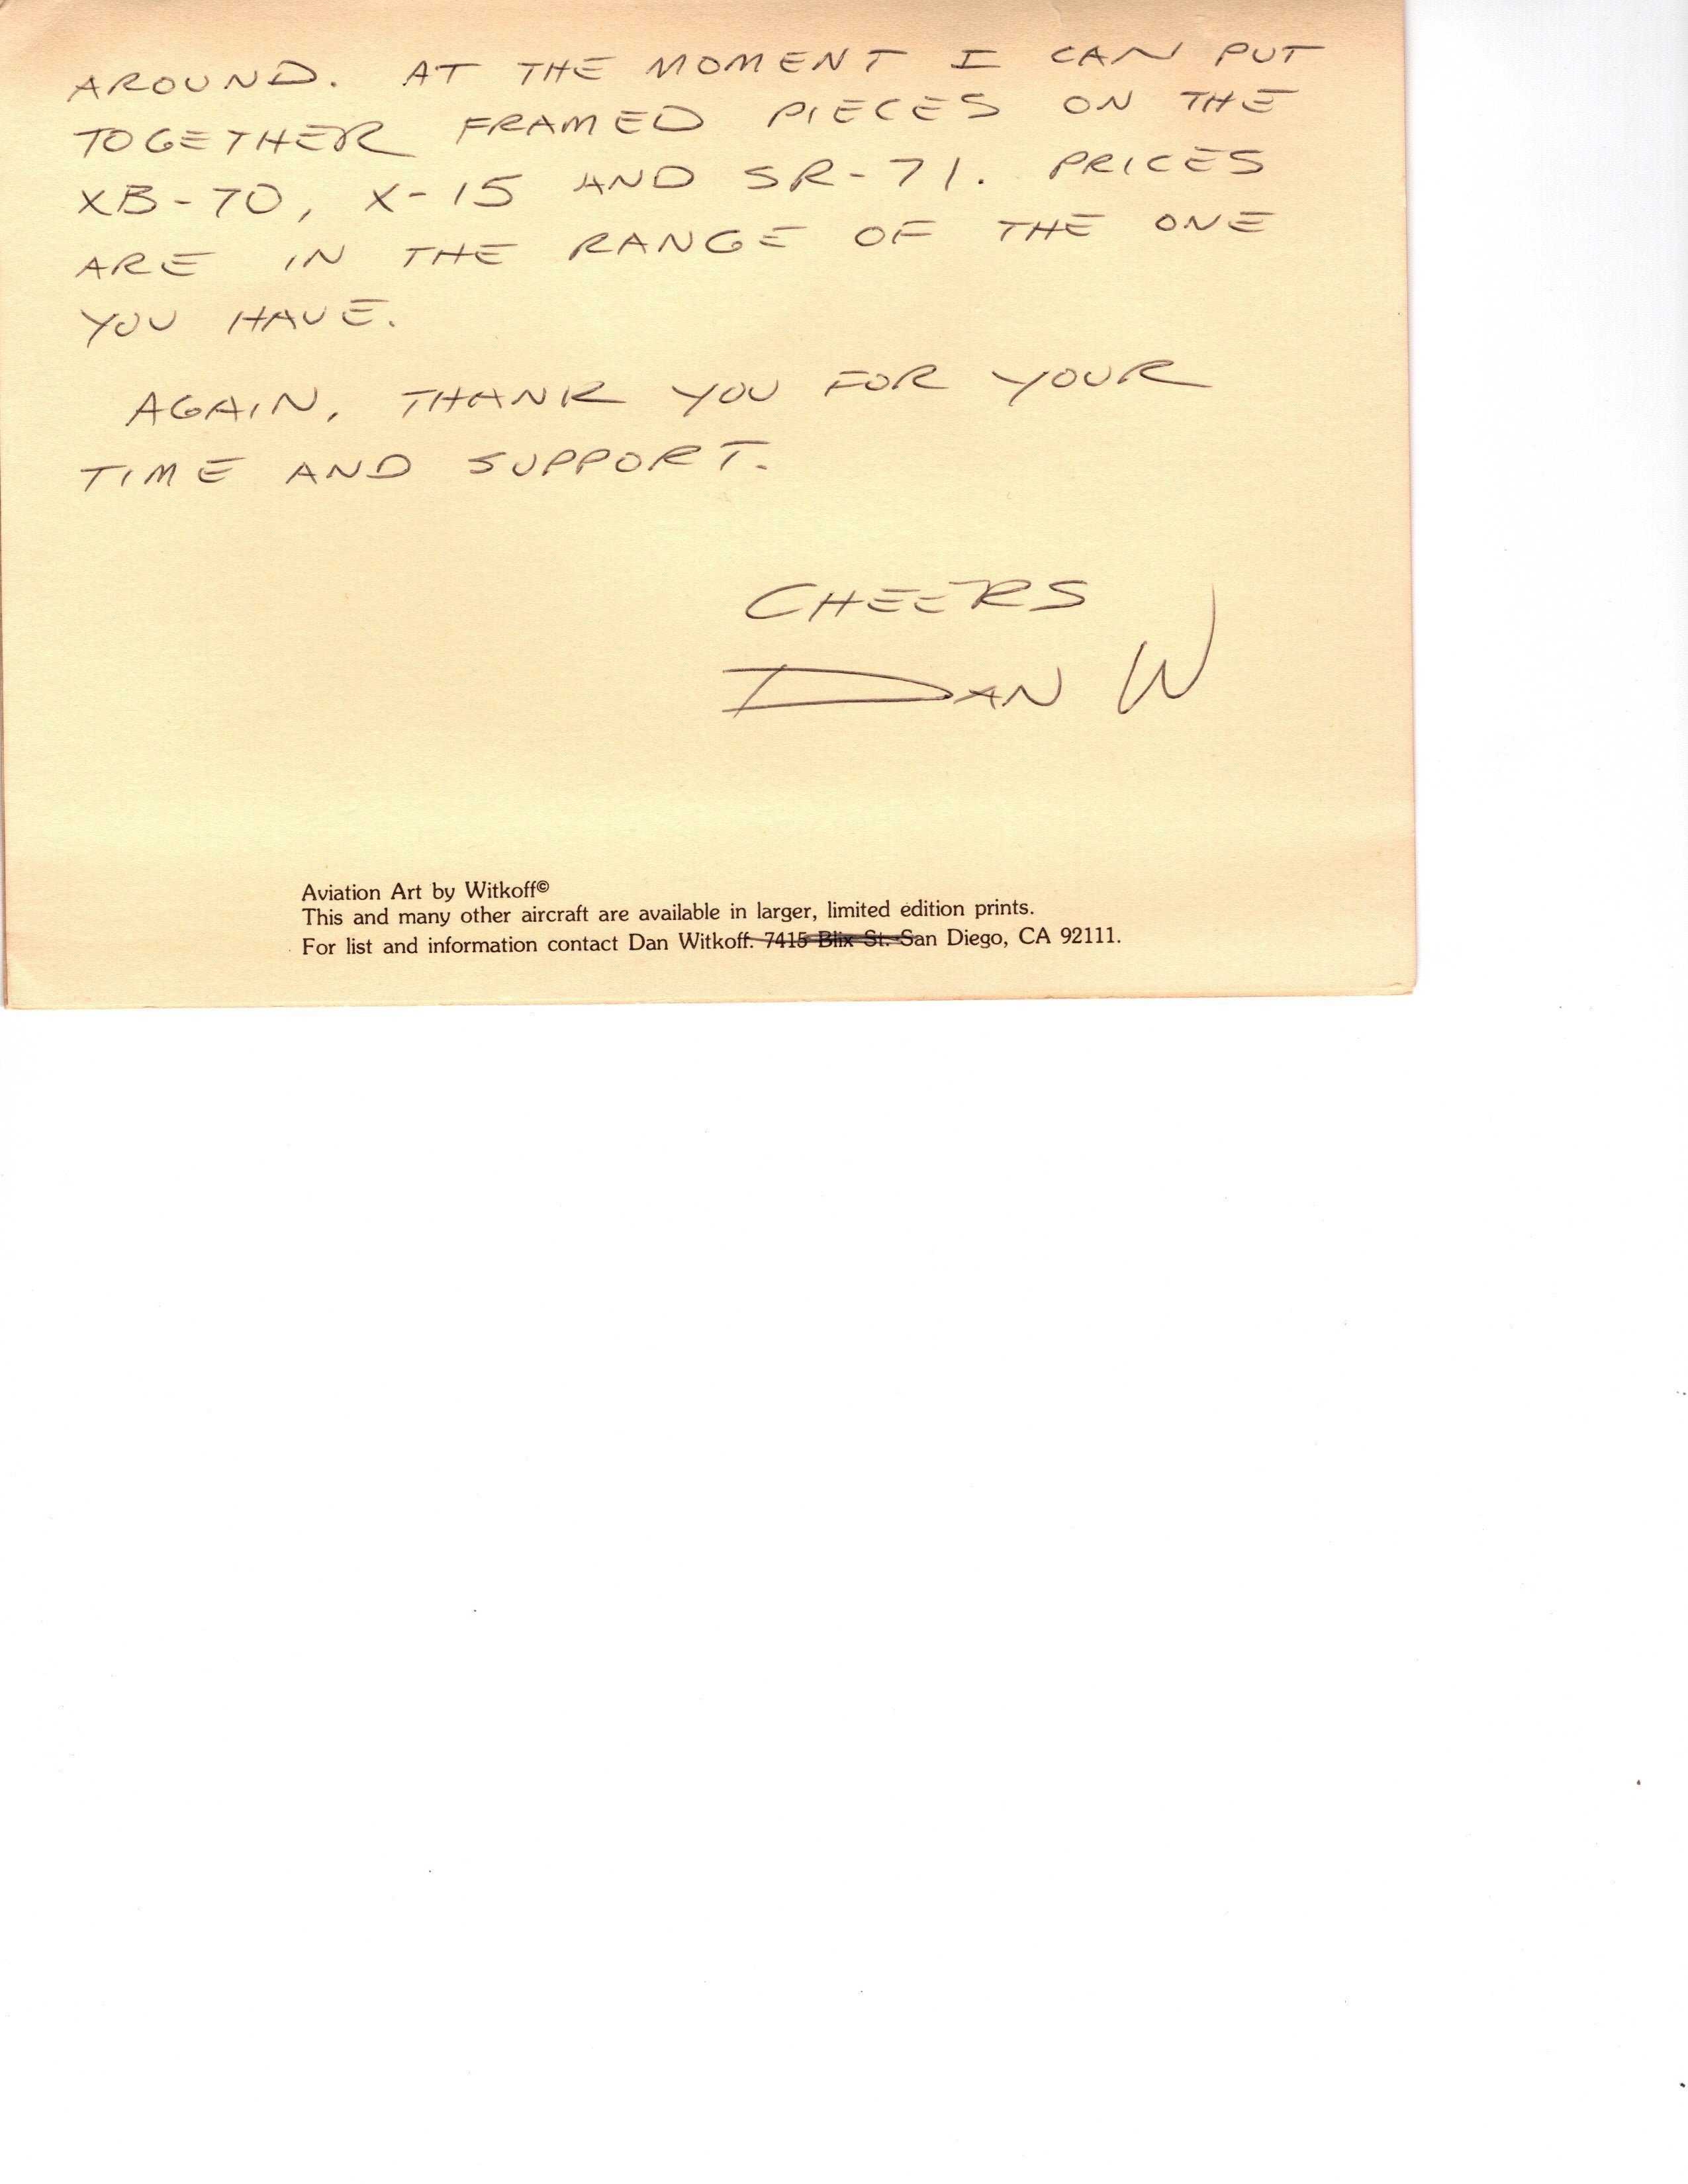 AROUND. AT THE MOMENT I CAN PUT
TOGETHER FRAMED PIECES ON THE
XB-70, X-15 AND SR-71. PRICES
ARE IN THE RANGE OF THE ONE
YOU HAVE.
AGAIN, THANK YOU FOR YOUR
TIME AND SUPPORT.
CHEERS
DAN W
Aviation Art by Witkoff©
This and many other aircraft are available in larger, limited edition prints.
For list and information contact Dan Witkoff. 7415 Blix St. San Diego, CA 92111.